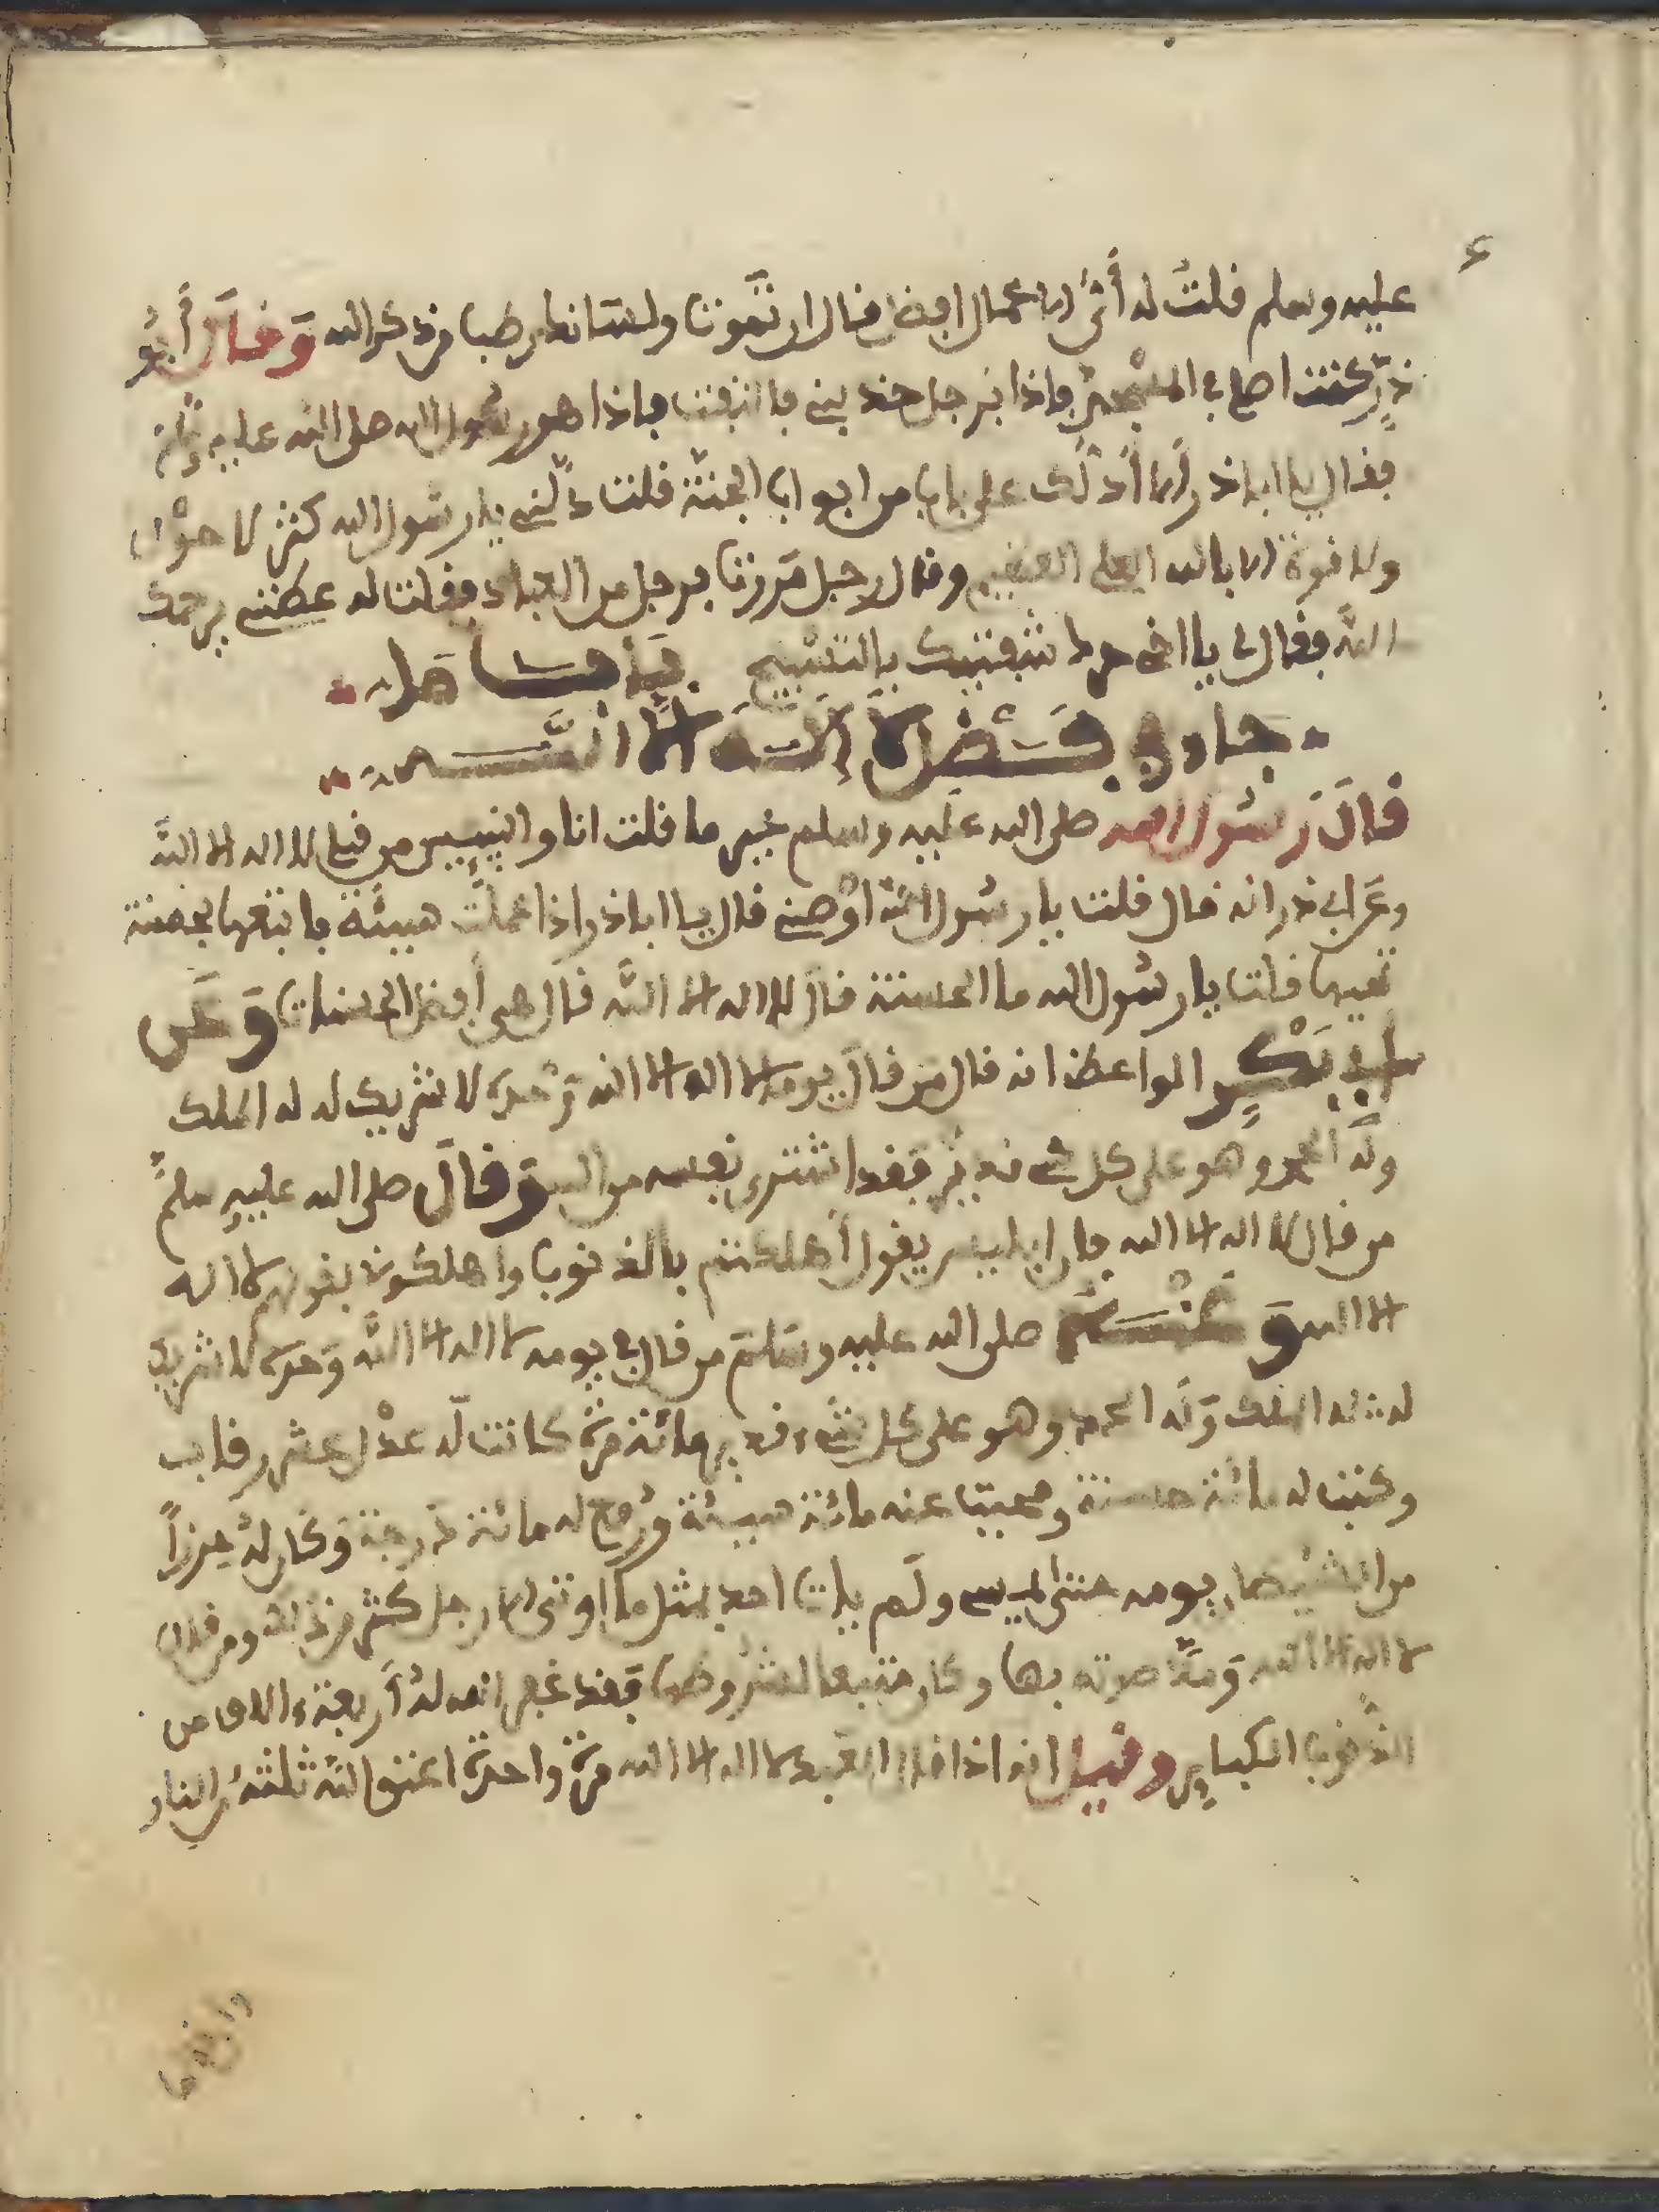 عليه وسلم فلت له أي الاعمال افضل فال ان تموت ولسانك رطب من ذكر الله وَفَالَ أَبُو
ذرٍّ كنت اصلي في المسجد فاذا برجل جذبني فالتفت فاذا هو رسول الله صلى الله عليه
ففال يا اباذر ألا أدُلُّك على باب من ابواب الجنة فلت دُلَّني يا رسول الله كثر لا حول
ولا فوة الا بالله العلي العظيم وفال رجل مررت برجل من العباد ففلت له عظني يرحمك
الله ففال لي يا اخي بالتسبيح
جاء في فضل لا إله إلا الله
فال رسول الله صلى الله عليه وسلم خير ما فلت انا والنبيين من فبلي لا اله الا الله
وعن ابي ذر انه فال فلت يا رسول الله أوصني فال يا اباذر اذا عملت سيئة فاتبعها بحسنة
فلت يا رسول الله ما الحسنة فال لا اله الا الله فال هي أفضل الحسنات وَعَن
أبي بَكْرٍ الواعظ انه فال من فال يومه لا اله الا الله وحده لا شريك له له الملك
وله الحمد وهو على كل شيء فدير ففد اشترى نفسه من الله وَفال صلى الله عليه سلم
من فال لا اله الا الله فان ابليس يفول أهلكتهم بالذنوب واهلكوني بفولهم لا اله
الا الله وَعَنْهُ صلى الله عليه وسلم من فال في يومه لا اله الا الله وحده لا شريك
له له الملك وَله الحمد وهو على كل شيء فدير مائة مرة كانت له عدْل عشر رفاب
وكتبت له مائة حسنة ومحيت عنه مائة سيئة ورُفع له مائة درجة وَكان لهُ حرزاً
من الشيطان يومه حتى يمسي ولَم يات احد بمثل ما اوتي الا رجل كثر من ذلك ومن فال
لا اله الا الله وَمَدَّ صوته بها ففد غفر الله لهُ أربعة ءالاف من
الذنوب الكباير وفيل انه اذا فال العبد لا اله الا الله مرة واحدة اعتق الله ثلثهُ من النار